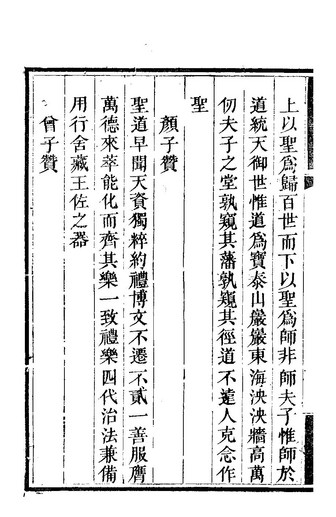 上以聖為歸百世而下以聖為師非師夫子惟師於
道統天御世惟道為寶泰山巖巖東海泱泱牆高萬
仞夫子之堂孰窺其藩孰窺其徑道不遠人克念作
聖
顏子贊
聖道早聞天資獨粹約禮博文不遷不貳一善服膺
萬德來萃能化而齊其樂一致禮樂四代治法兼備
用行舍藏王佐之器
曾子贊